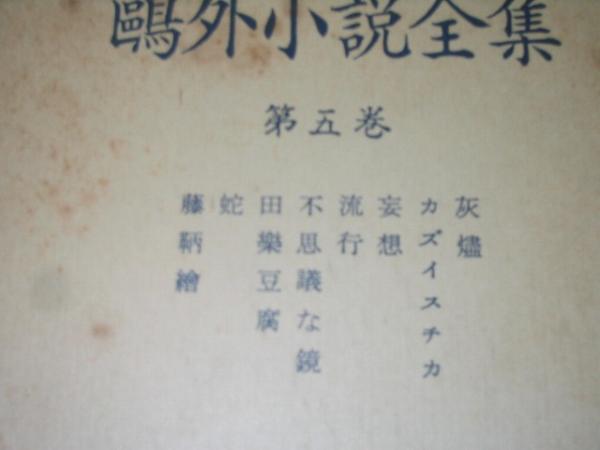 鷗外小説全集
第五巻
灰燼
カズイスチカ
妄想
流行
不思議な鏡
田樂豆腐
蛇
藤鞆繪